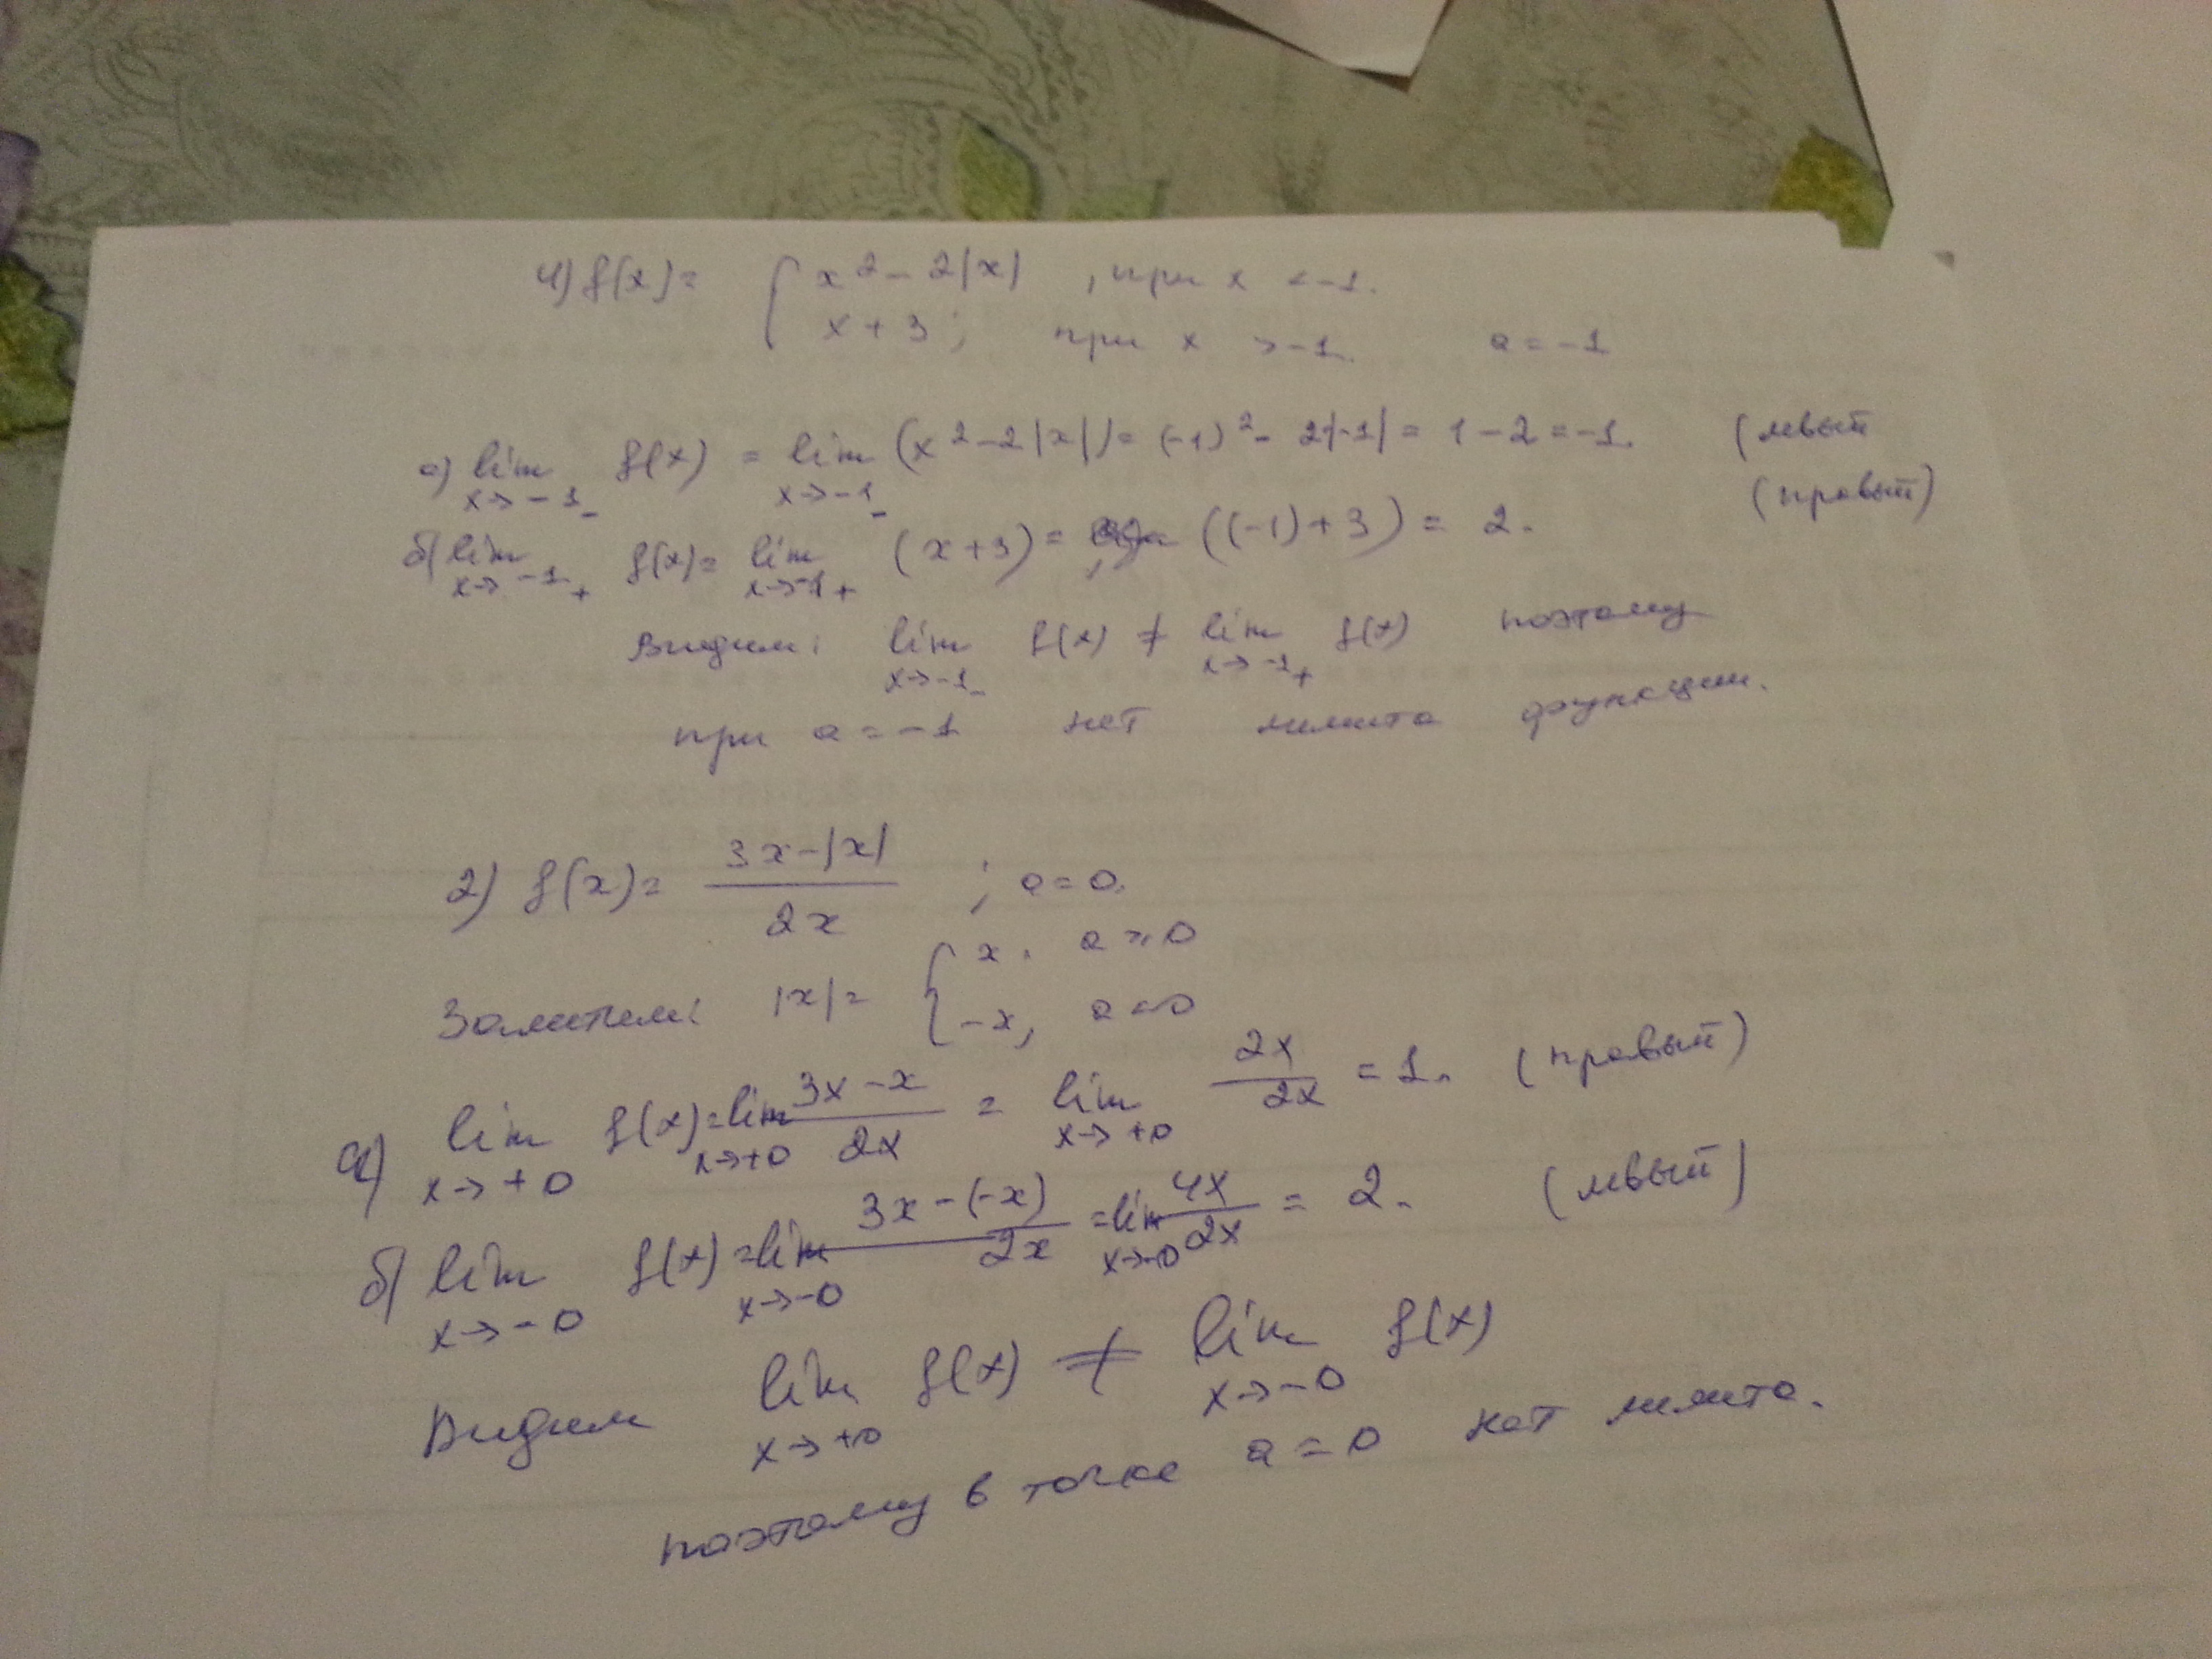 4) f(x) = { x² - 2|x| , при x < -1.
x + 3 ; при x > -1. a = -1
а) lim x→-1₋ f(x) = lim x→-1₋ (x² - 2|x|) = (-1)² - 2|-1| = 1 - 2 = -1. (левый
б) lim x→-1₊ f(x) = lim x→-1₊ (x + 3) = ((-1) + 3) = 2. (правый)
Видим: lim x→-1₋ f(x) ≠ lim x→-1₊ f(x) поэтому
при a = -1 нет лимита функции.
2) f(x) = (3x - |x|) / 2x ; a = 0.
Заметим: |x| = { x, a ≥ 0
-x, a < 0
а) lim x→+0 f(x) = lim x→+0 (3x - x) / 2x = lim x→+0 2x / 2x = 1. (правый)
б) lim x→-0 f(x) = lim x→-0 (3x - (-x)) / 2x = lim x→-0 4x / 2x = 2. (левый)
Видим lim x→+0 f(x) ≠ lim x→-0 f(x)
поэтому в точке a = 0 нет лимита.